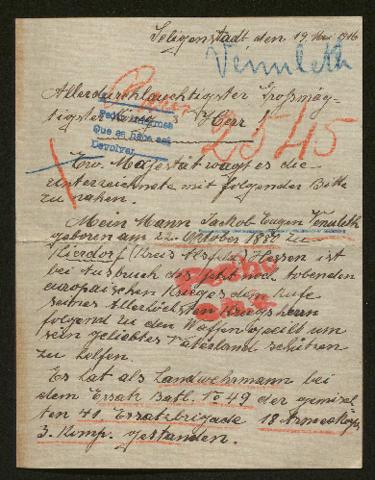 Seligenstadt den 19. Nov. 1916
Venuleth
Allerdurchlauchtigster Großmäch-
tigster König Herr!
Que se hace así
Devolver
2545
Ew. Majestät wagt es die
unterzeichnete mit folgender Bitte
zu nahen.
Mein Mann Jackob Eugen Venuleth
geboren am 22. Oktober 1880 zu
Kreis Alsfeld Hessen ist
bei Ausbruch des jetzt noch tobenden
europäischen Krieges dem Rufe
seines Allerhöchsten Kriegsherrn
folgend zu den Waffen geeilt um
sein geliebtes Vaterland schützen
zu helfen.
Er hat als Landwehrmann bei
dem Ersatz Batl. No 49 der gemisch-
ten 41 Ersatzbrigade 18 Armeekorps
3. Komp. gestanden.